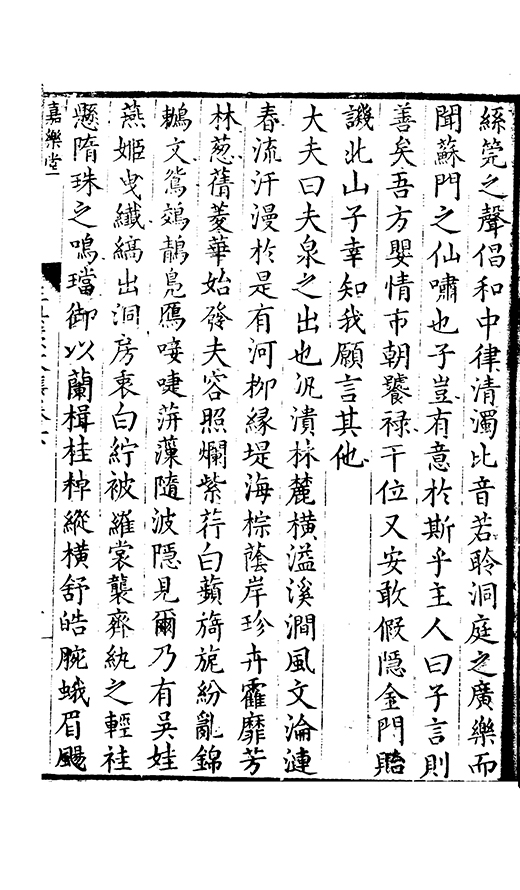 絲筦之聲倡和中律清濁比音若聆洞庭之廣樂而
聞蘇門之仙嘯也子豈有意於斯乎主人曰子言則
善矣吾方嬰情市朝饕祿干位又安敢假隱金門貽
譏北山子幸知我願言其他
大夫曰夫泉之出也汎濆林麓橫溢溪澗風文淪漣
春流汗漫於是有河柳緣堤海棕蔭岸珍卉靃靡芳
林葱蒨菱華始發夫容照爛紫荇白蘋旖旎紛亂錦
鶒文鴛鵁鶄鳧鴈唼啑蓱藻隨波隱見爾乃有吳娃
燕姬曳纖縞出洞房衷白紵被羅裳襲齊紈之輕袿
懸隋珠之鳴璫御以蘭楫桂棹縱橫舒皓腕蛾眉颺
嘉樂堂